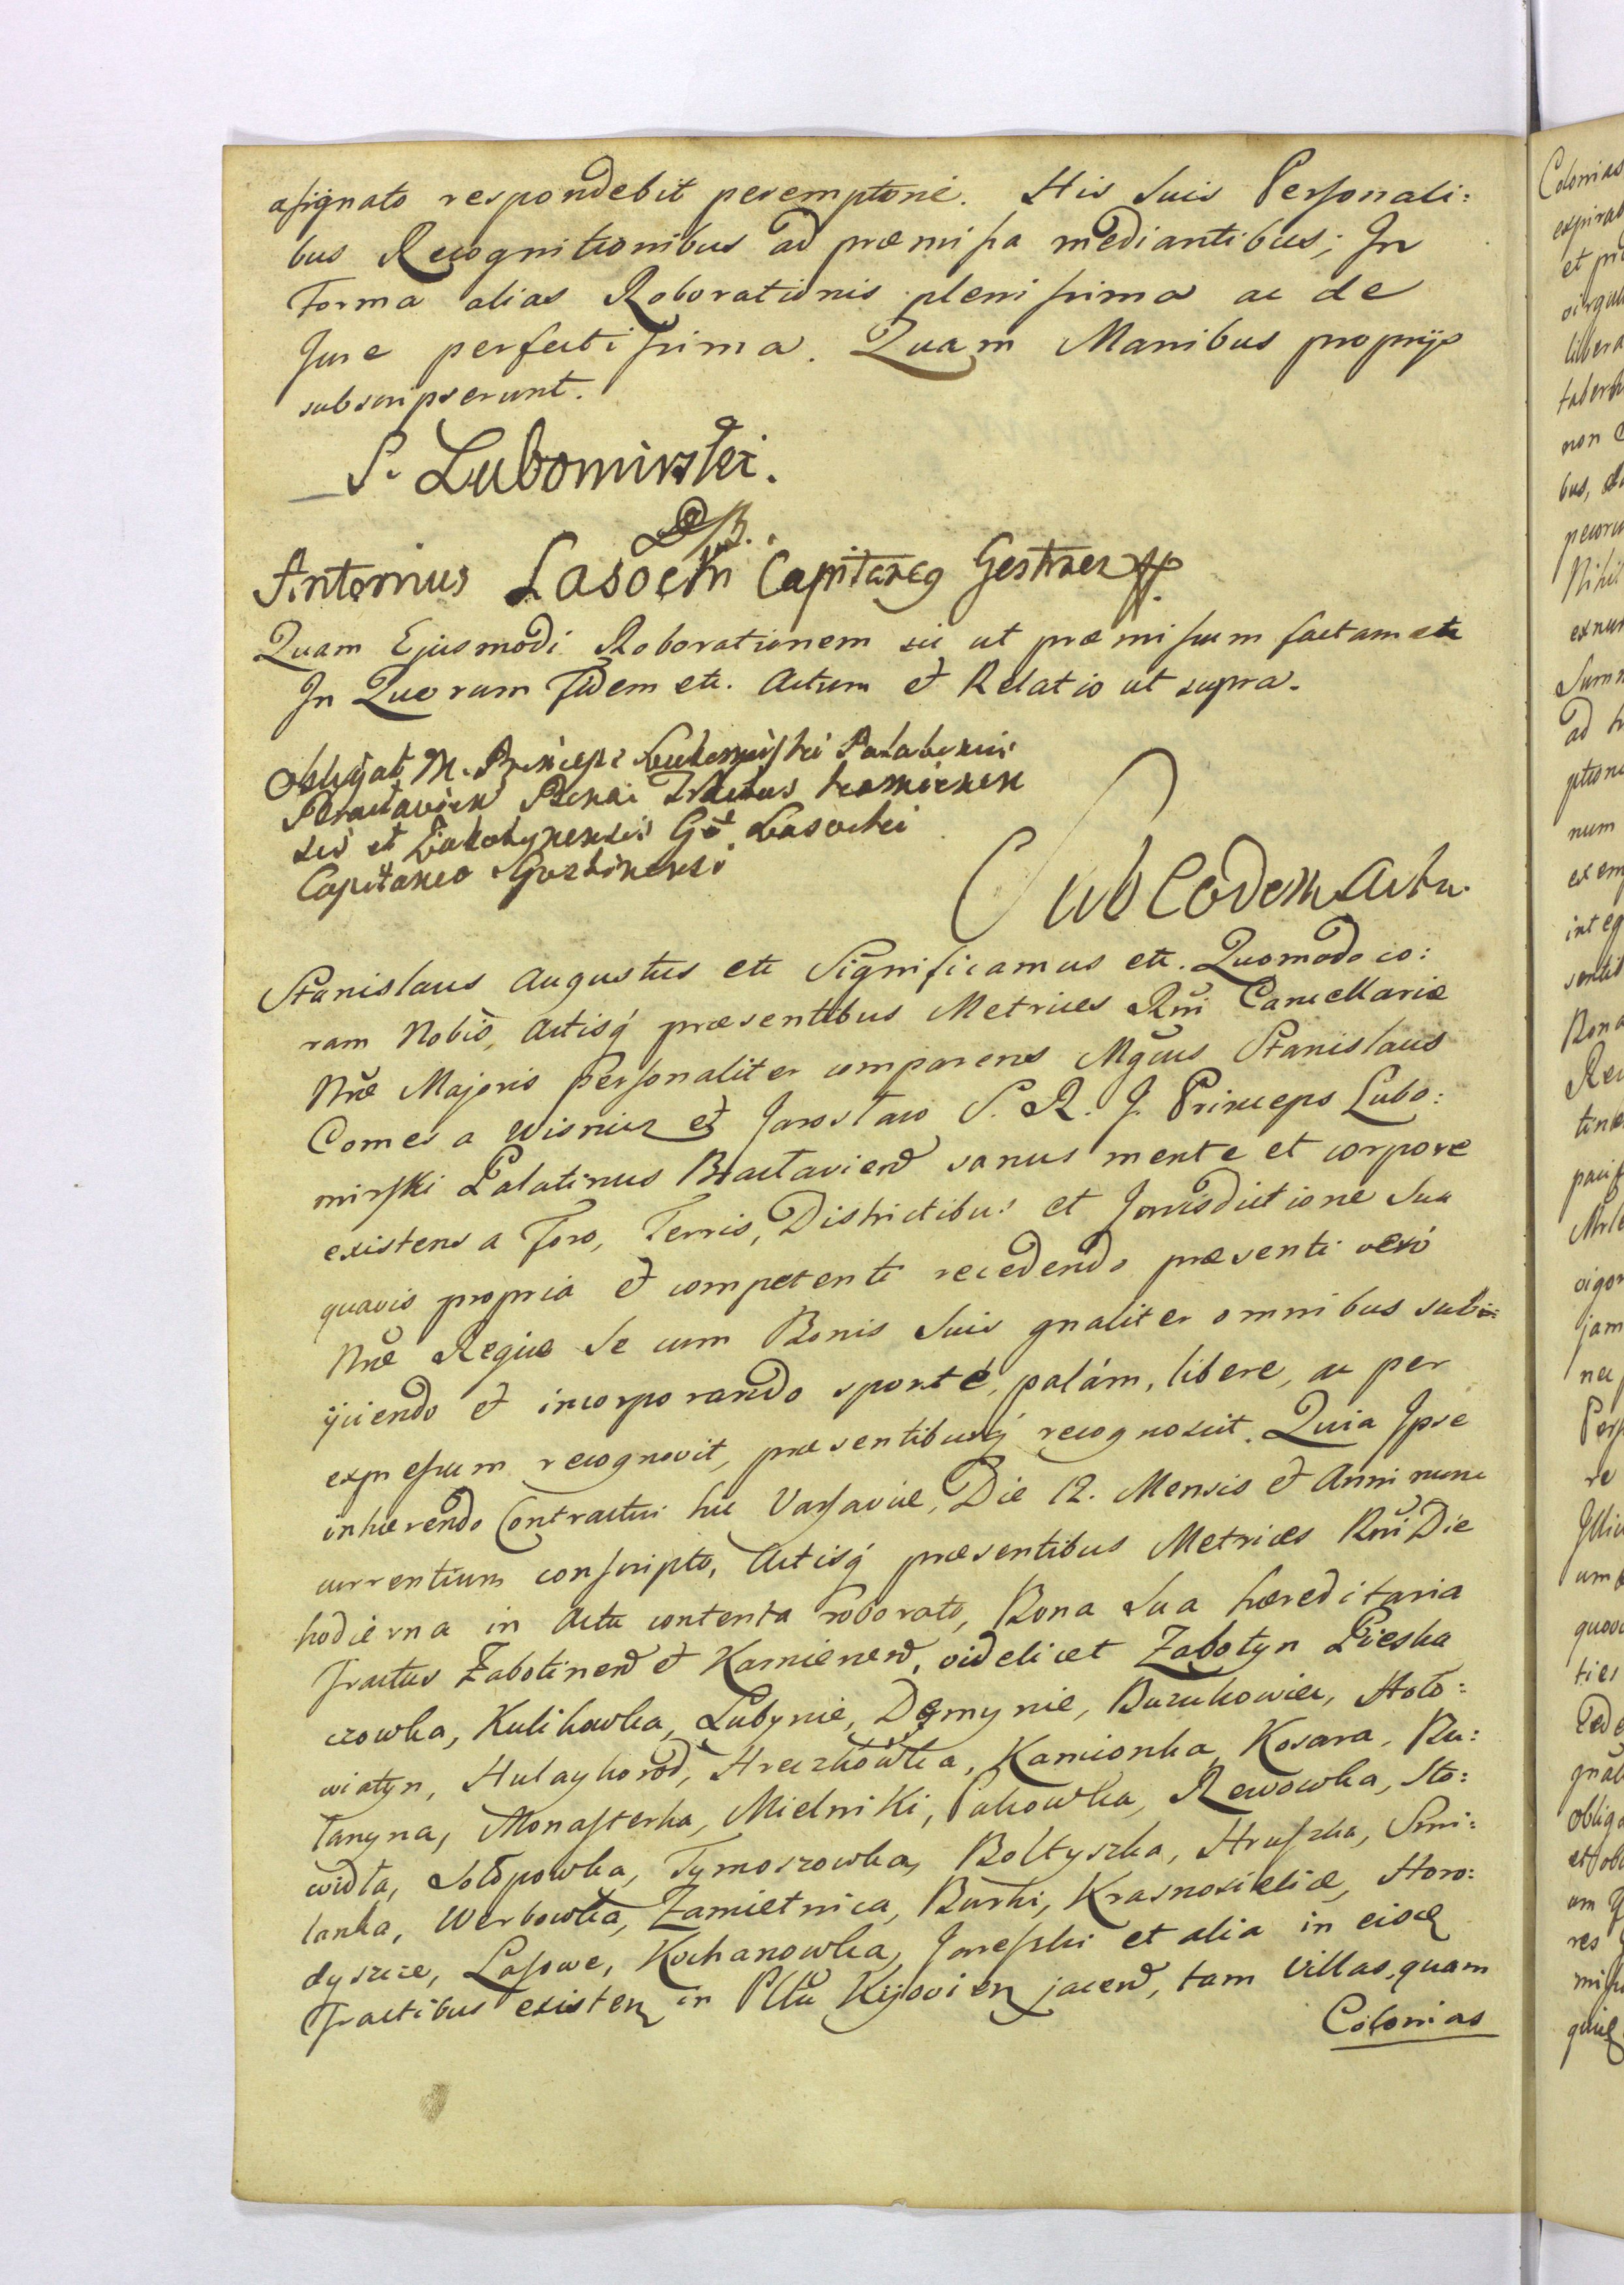 aſsignato respondebit peremptorié. His Suis Perſonali:
bus Recognitionibus ad præmiſsa mediantibus; In
Forma alias Roborationis pleniſsima ac de
Jure perfectiſsima. Quam Manibus proprijs
subscripserunt.
S. Lubomirski.
Antonius Lasocki Capitaneg Gostinen
Quam Ejusmodi Roborationem sic ut præmiſsum factam etc
In Quorum Fidem etc. Actum et Relatio ut supra.
Obligat M. Princeps Lubomirski Palatinus
Braclavien Bona Tractus Kamienen
sis et Zabotynensis Gō Lasocki
Capitaneo Gostinensi
Sub Eodem Actu.
Stanislaus Augustus etc Significamus etc. Quomodo co:
ram Nobis, Actisq́ præsentibus Metrices Rñi Cancellariæ
Nræ Majoris Perſonaliter comparens Mgcus Stanislaus
Comes a Wisnicz et Jaroslaw S. R. J. Princeps Lubo:
mirſki Palatinus Braclavien sanus mente et corpore
existens a Foro, Terris, Districtibus et Jurisdictione Sua
quavis propria et competenti recedendo præsenti veró
Nræ Regiæ Se cum Bonis Suis gnaliter omnibus subi:
ijciendo et incorporando sponté, palám, libere, ac per
expreſsum recognovit, præsentibusq́ recognoscit. Quia Ipse
inhærendo Contractui hic Varſaviæ, Die 12. Mensis et Anni nunc
currentium conſcripto, Actisq́ præsentibus Metrices Rñi Die
hodierna in Actu contenta roborato, Bona Sua hæreditaria
Tractus Zabotinen et Kamienen, videlicet Zabotyn Pleska
czowka, Kulikowka, Lubynie, Demynie, Buzukowiec, Hoło:
wiatyn, Hulayhorod, Hreczkowka, Kamionka, Kosara, Ru:
łanyna, Monaſterka, Mielniki, Rewowka, Sto:
widła, Tymoszowka, Boltyszka, Hruſzka, Smi:
lanka, Werbowka, Zamietnica, Burki, Krasnosielie, Horo:
dyszcze, Laſsowe, Kochanowka, et alia in eisdē
Tractibus existen in Plltu Kijovien jacen, tam Villas, quam
Colonias